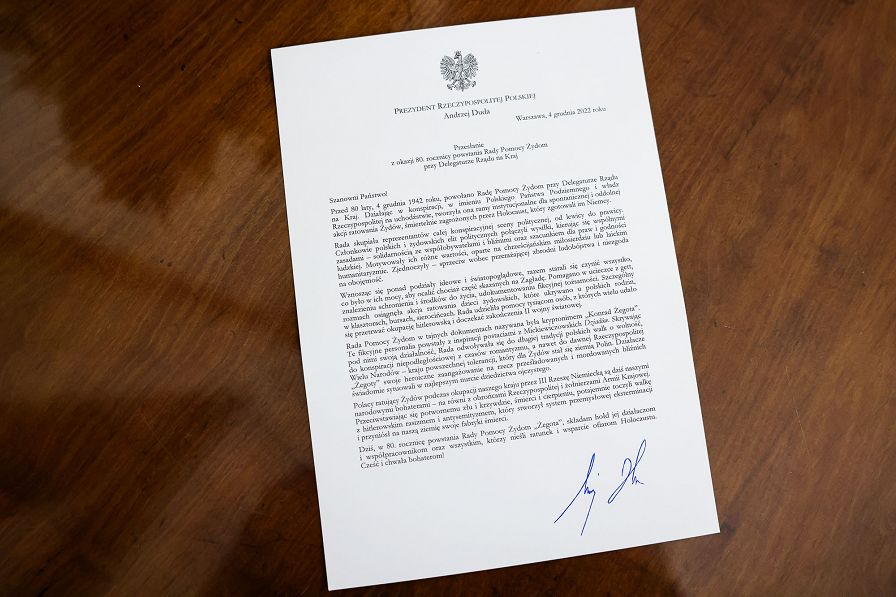 PREZYDENT RZECZYPOSPOLITEJ POLSKIEJ
Andrzej Duda
Warszawa, 4 grudnia 2022 roku
Przesłanie
z okazji 80. rocznicy powstania Rady Pomocy Żydom
przy Delegaturze Rządu na Kraj
Szanowni Państwo!
Przed 80 laty, 4 grudnia 1942 roku, powołano Radę Pomocy Żydom przy Delegaturze Rządu
na Kraj. Działając w konspiracji, w imieniu Polskiego Państwa Podziemnego i władz
Rzeczypospolitej na uchodźstwie, tworzyła ona ramy instytucjonalne dla spontanicznej i oddolnej
akcji ratowania Żydów, śmiertelnie zagrożonych przez Holocaust, który zgotowali im Niemcy.
Rada skupiała reprezentantów całej konspiracyjnej sceny politycznej, od lewicy do prawicy.
Członkowie polskich i żydowskich elit politycznych połączyli wysiłki, kierując się wspólnymi
zasadami – solidarnością ze współobywatelami i bliźnimi oraz szacunkiem dla praw i godności
ludzkiej. Motywowały ich różne wartości, oparte na chrześcijańskim miłosierdziu lub laickim
humanitaryzmie. Zjednoczyły – sprzeciw wobec przerażającej zbrodni ludobójstwa i niezgoda
na obojętność.
Wznosząc się ponad podziały ideowe i światopoglądowe, razem starali się czynić wszystko,
co było w ich mocy, aby ocalić chociaż część skazanych na Zagładę. Pomagano w ucieczce z gett,
znalezieniu schronienia i środków do życia, udokumentowaniu fikcyjnej tożsamości. Szczególny
rozmach osiągnęła akcja ratowania dzieci żydowskich, które ukrywano u polskich rodzin,
w klasztorach, bursach, sierocińcach. Rada udzieliła pomocy tysiącom osób, z których wielu udało
się przetrwać okupację hitlerowską i doczekać zakończenia II wojny światowej.
Rada Pomocy Żydom w tajnych dokumentach nazywana była kryptonimem „Konrad Żegota”.
Te fikcyjne personalia powstały z inspiracji postaciami z Mickiewiczowskich Dziadów. Skrywając
pod nimi swoją działalność, Rada odwoływała się do długiej tradycji polskich walk o wolność,
do konspiracji niepodległościowej z czasów romantyzmu, a nawet do dawnej Rzeczypospolitej
Wielu Narodów – kraju powszechnej tolerancji, który dla Żydów stał się ziemią Polin. Działacze
„Żegoty” swoje heroiczne zaangażowanie na rzecz prześladowanych i mordowanych bliźnich
świadomie sytuowali w najlepszym nurcie dziedzictwa ojczystego.
Polacy ratujący Żydów podczas okupacji naszego kraju przez III Rzeszę Niemiecką są dziś naszymi
narodowymi bohaterami – na równi z obrońcami Rzeczypospolitej i żołnierzami Armii Krajowej.
Przeciwstawiając się potwornemu złu i krzywdzie, śmierci i cierpieniu, potajemnie toczyli walkę
z hitlerowskim rasizmem i antysemityzmem, który stworzył system przemysłowej eksterminacji
i przyniósł na naszą ziemię swoje fabryki śmierci.
Dziś, w 80. rocznicę powstania Rady Pomocy Żydom „Żegota”, składam hołd jej działaczom
i współpracownikom oraz wszystkim, którzy nieśli ratunek i wsparcie ofiarom Holocaustu.
Cześć i chwała bohaterom!